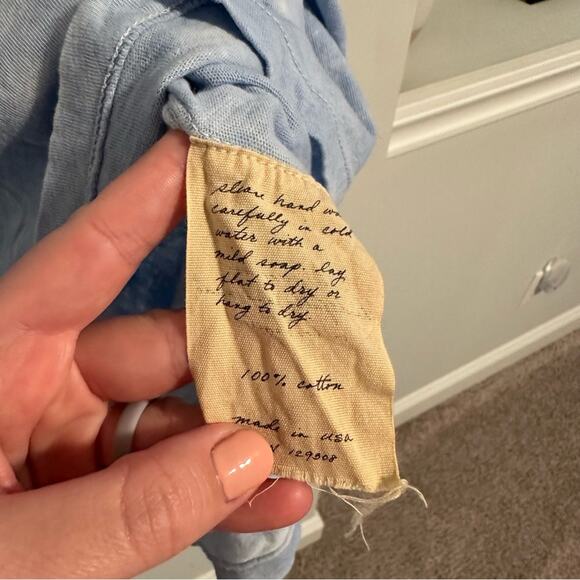 hand
carefully in cold
water with a
mild soap. lay
flat to dry or
hang to dry
100% cotton
made in usa
129508